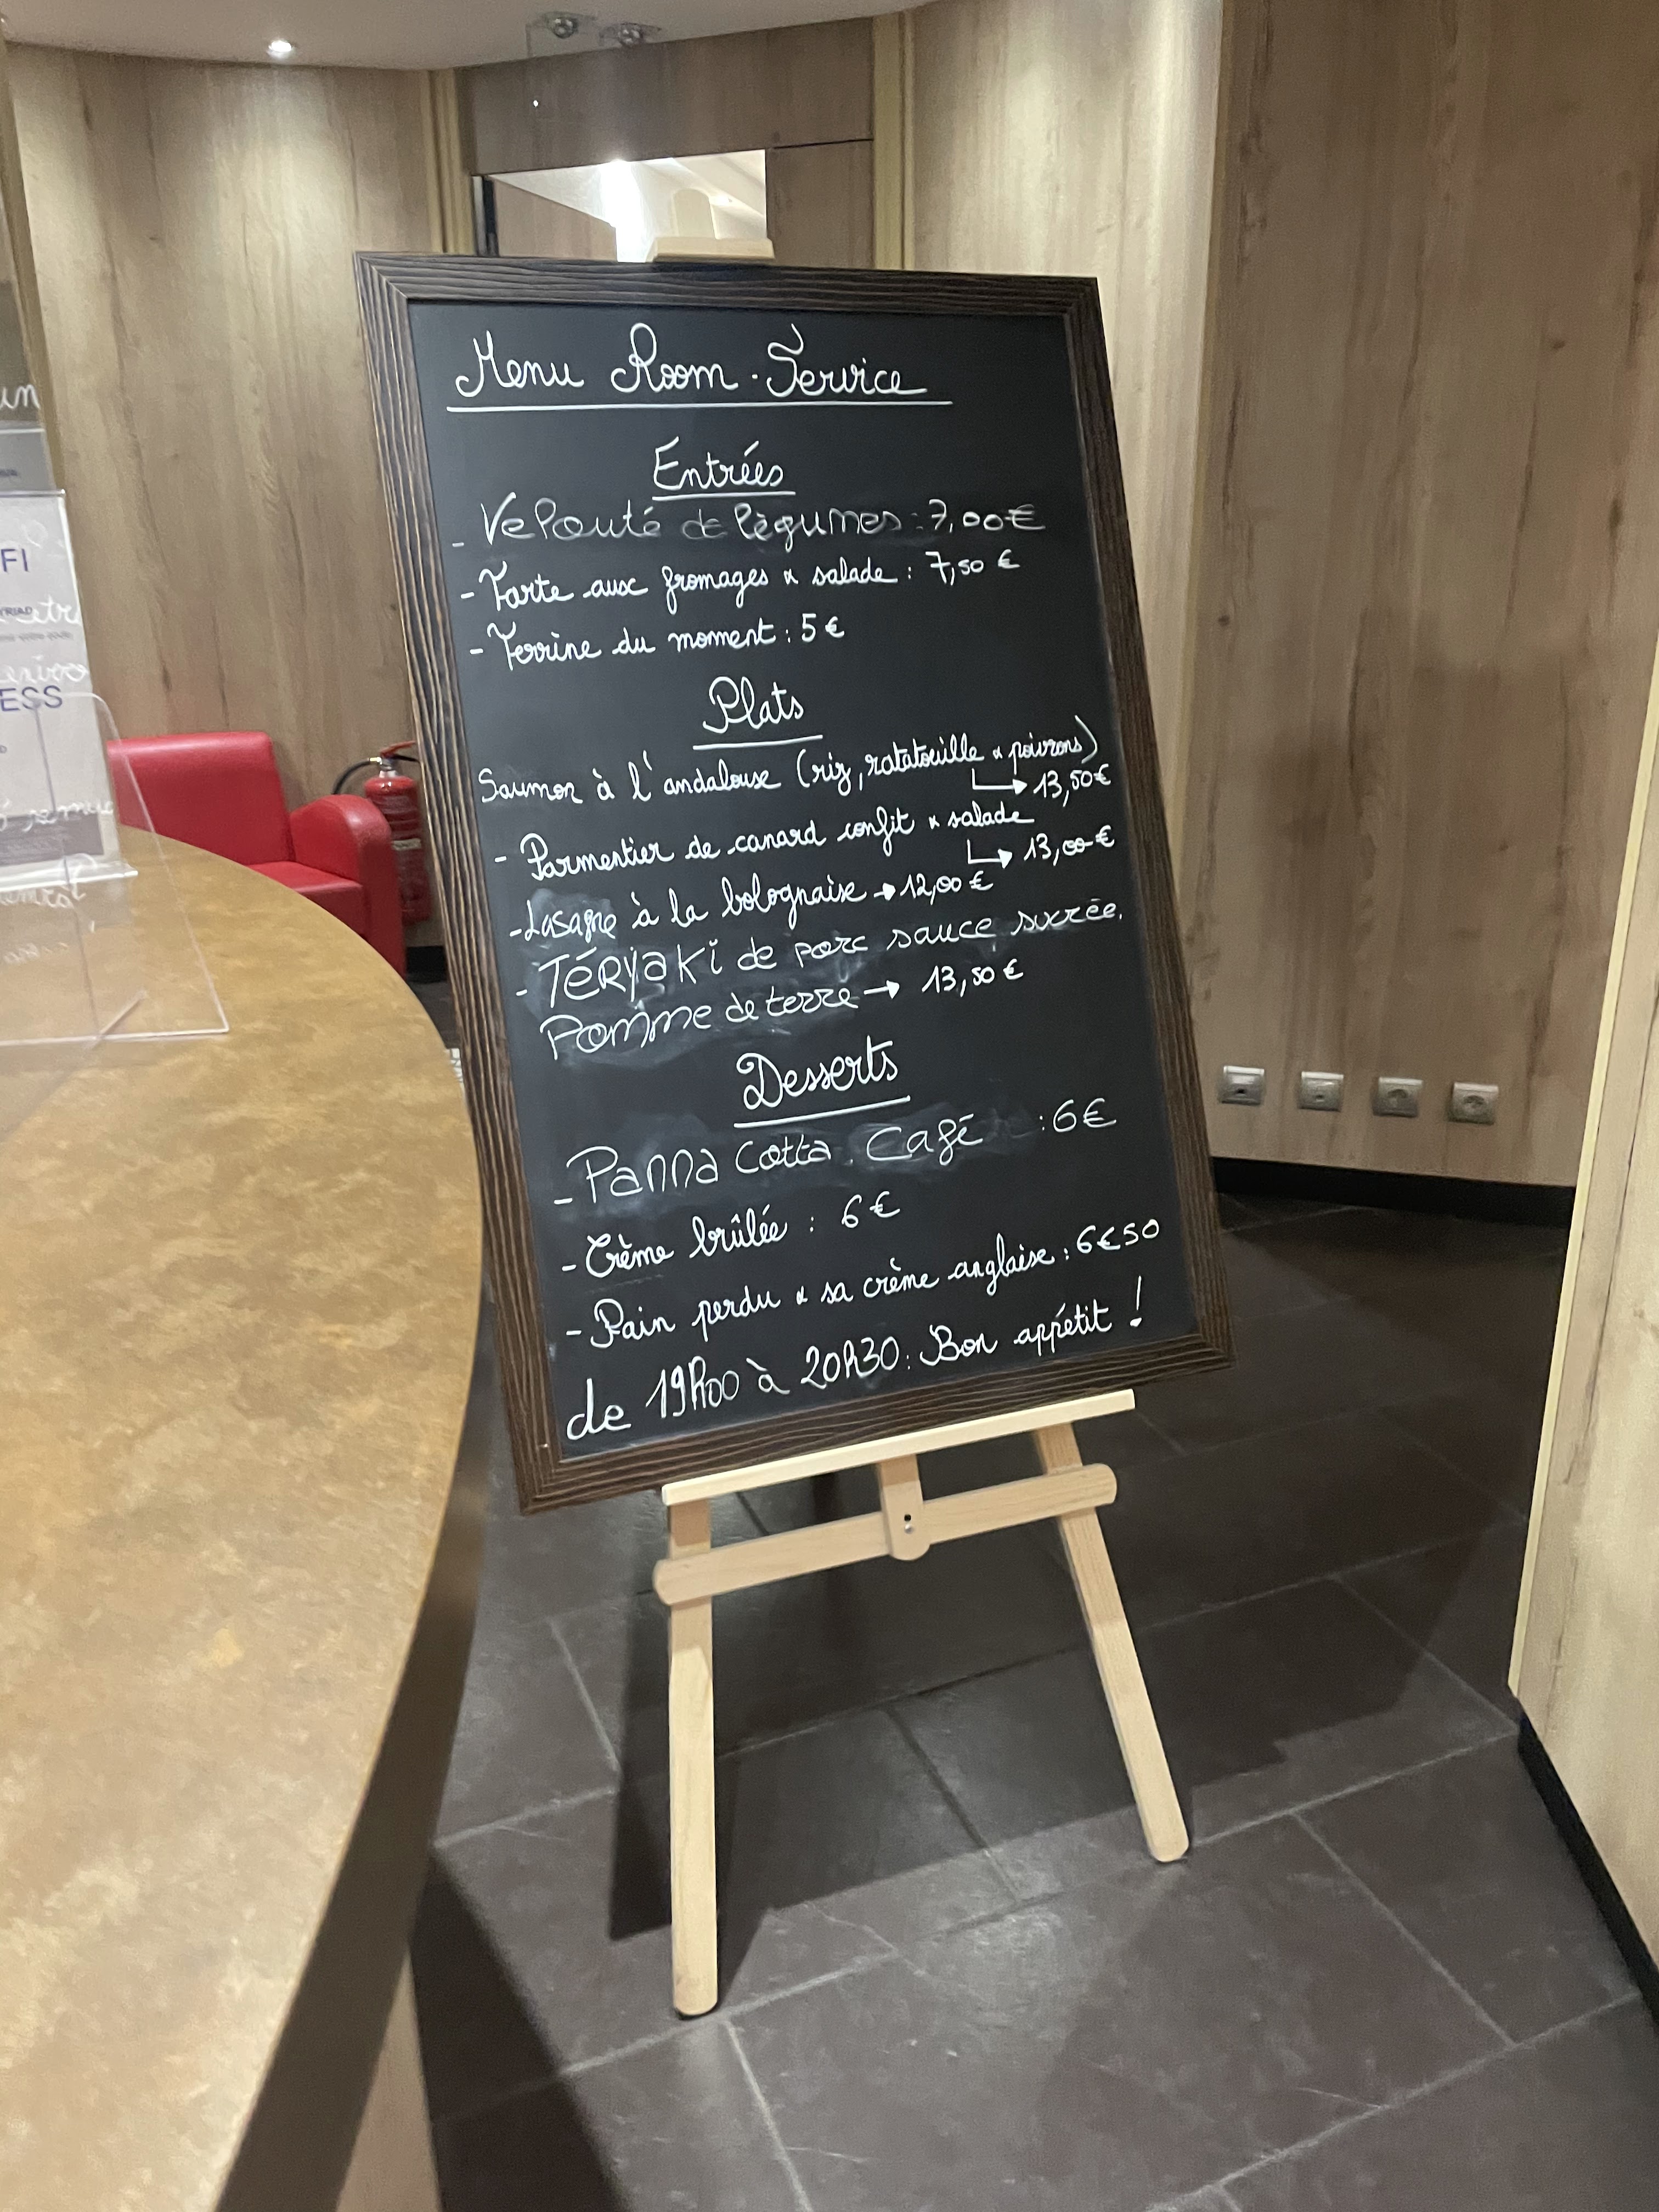 Menu Room-Service
Entrées
- Velouté de légumes : 7,00 €
- Tarte aux fromages & salade : 7,50 €
- Terrine du moment : 5 €
Plats
Saumon à l'andalouse (riz, ratatouille & poivrons)
→ 13,50 €
- Parmentier de canard confit & salade
→ 13,00 €
- Lasagne à la bolognaise → 12,00 €
- TÉRYAKI de porc sauce sucrée.
Pomme de terre → 13,50 €
Desserts
- Panna Cotta Café : 6 €
- Crème brûlée : 6 €
- Pain perdu & sa crème anglaise : 6€50
de 19h00 à 20h30 : Bon appétit !
FI
YRIAD
ESS